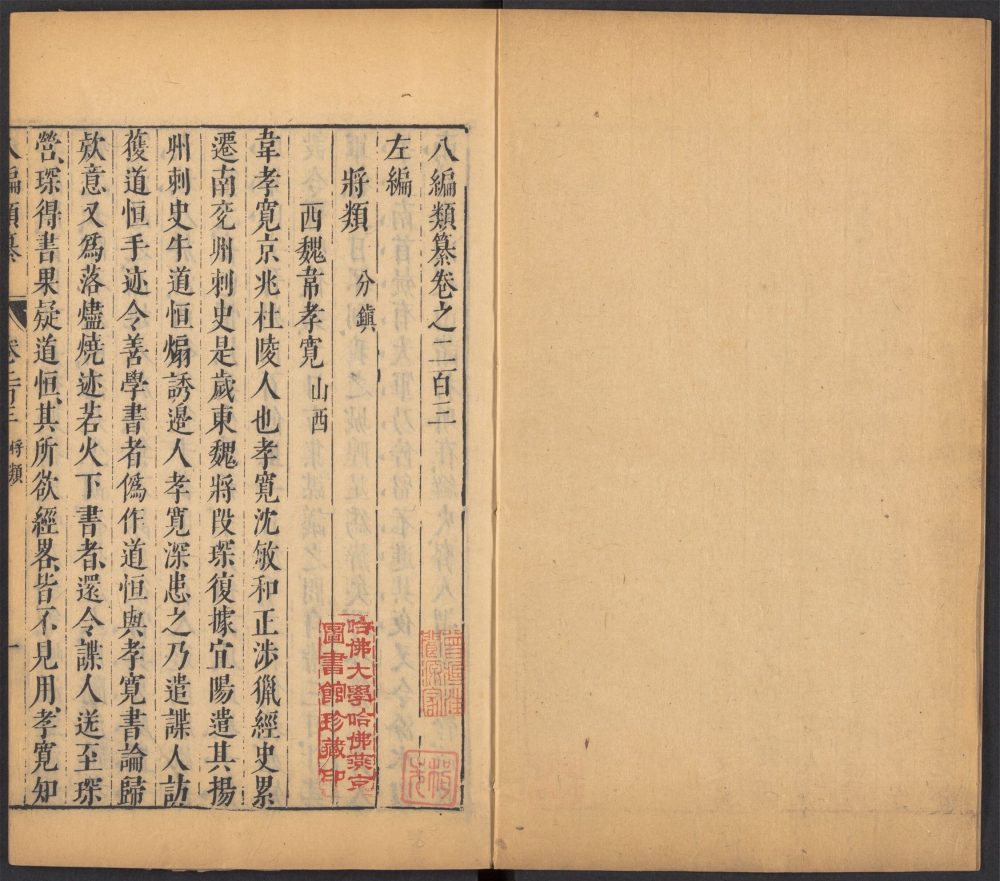 八編類纂卷之二百三
左編
將類 分鎮
西魏韋孝寬 山西
韋孝寬京兆杜陵人也孝寬沈敏和正涉獵經史累
遷南兗州刺史是歲東魏將段琛復據宜陽遣其揚
州刺史牛道恒煽誘邊人孝寬深患之乃遣諜人訪
獲道恒手迹令善學書者僞作道恒與孝寬書論歸
欵意又爲落燼燒迹若火下書者還令諜人送至琛
營琛得書果疑道恒其所欲經畧皆不見用孝寬知
八編類纂 卷二百三 將類 一
哈佛大學哈佛燕京
圖書館珍藏印